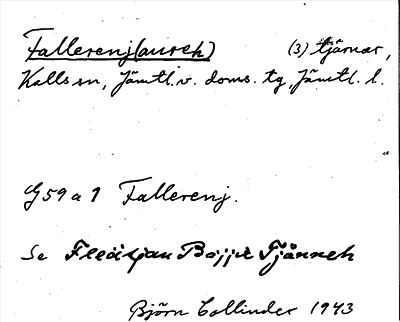 Fallerenj(aureh) (3) tjärnar,
Kalls sn, Jämtl. v. doms. tg, Jämtl. l.
G 59 a 1 Fallerenj.
Se Fleätjan Bajjie Tjänneh
Björn Collinder 1943